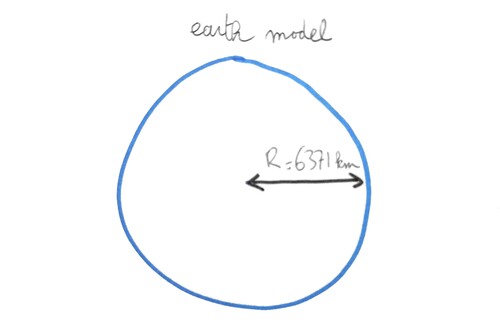 earth model
R=6371km